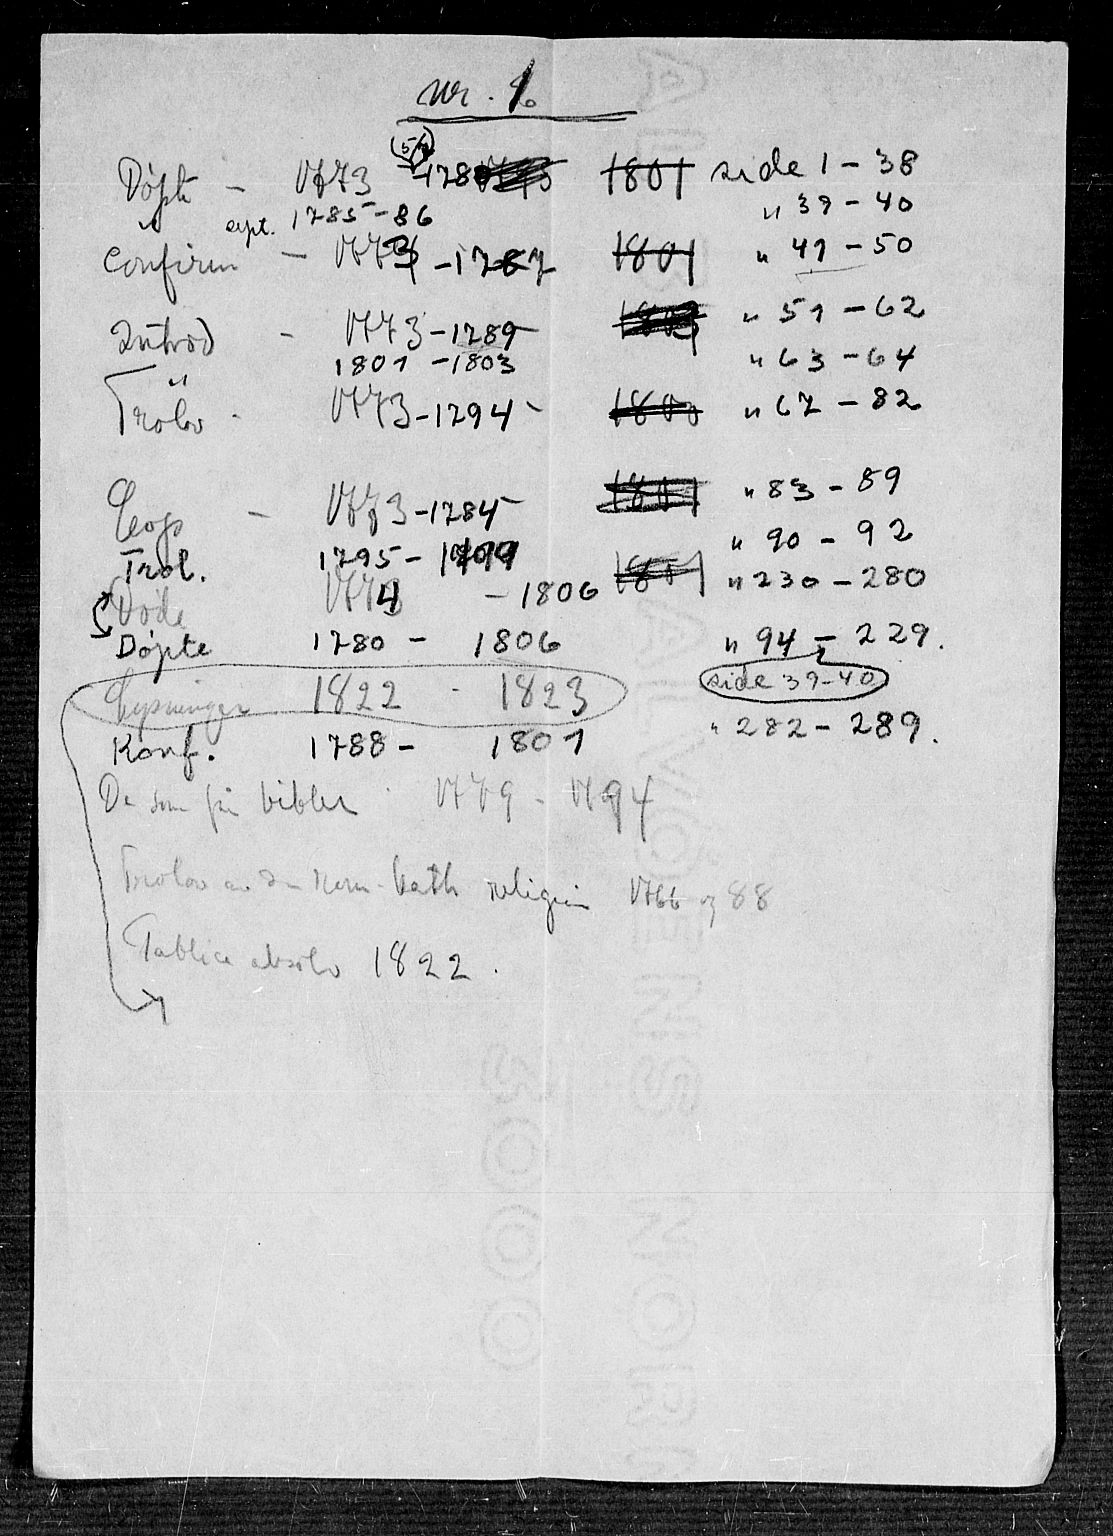 nr. 1.
(5/7)
Döpte - 1773 - 1780 1801 side 1 - 38
" expt. 1785-86 " 39 - 40
Confirm - 1773 - 1787 1801 " 41 - 50
Introd - 1773 - 1789 1803 " 51 - 62
" 1801 - 1803 " 63 - 64
Trolov - 1773 - 1794 1800 " 67 - 82
Cop - 1773 - 1784 1801 " 83 - 89
Trol. 1795 - 1799 " 90 - 92
Döde 1774 - 1806 1801 " 230 - 280
Döpte 1780 - 1806 " 94 - 229.
Lysninger 1822 - 1823 side 39-40
Konf. 1788 - 1801 " 282 - 289.
De som får bibler 1779 - 1794
Trolov av den Rom-kath religion 1786 og 88
Publice absolv 1822.